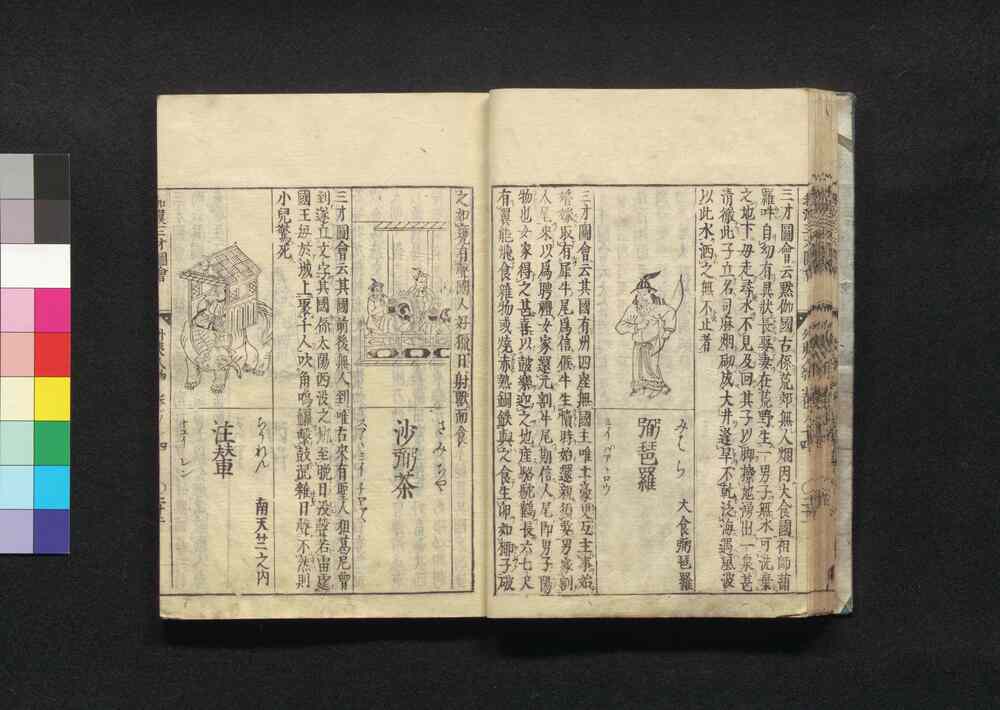 三才圖會云默伽國古係荒郊無人烟因大食國祖師蒲
羅吽自幼有異狀長娶妻在荒野生一男子無水可洗棄
之地下母走尋水不見及回其子以脚擦地湧出一泉甚
清徹此子立名司麻烟砌成大井逢旱不乾泛海遇風波
以此水洒之無不止者
みせら
大食弼琶羅
弼琶羅
三才圖會云其國有州四座無國主唯土豪更互主事始
婚嫁取有犀牛尾爲信俟牛生犢時始還親須娶男家割
人尾來以爲聘禮女家還元割牛尾期信人尾即男子陽
物也女家得之甚喜以鼓樂迎之地産駱駝鶴長六七尺
有翼能飛食雜物或燒赤熟銅鐵與之食生卵如椰子破
之如甕有聲國人好獵日射獸而食
さみちや
沙弼茶
三才圖會云其國前後無人到唯古來有聖人狙葛尼曾
到遂立文字其國係太陽西没之地至晩日没聲若雷霆
國王毎於城上聚千人吹角鳴鑼擊鼓混雜日聲不然則
小兒驚死
ちうれん
南天竺之内
注輦
チユイ レン